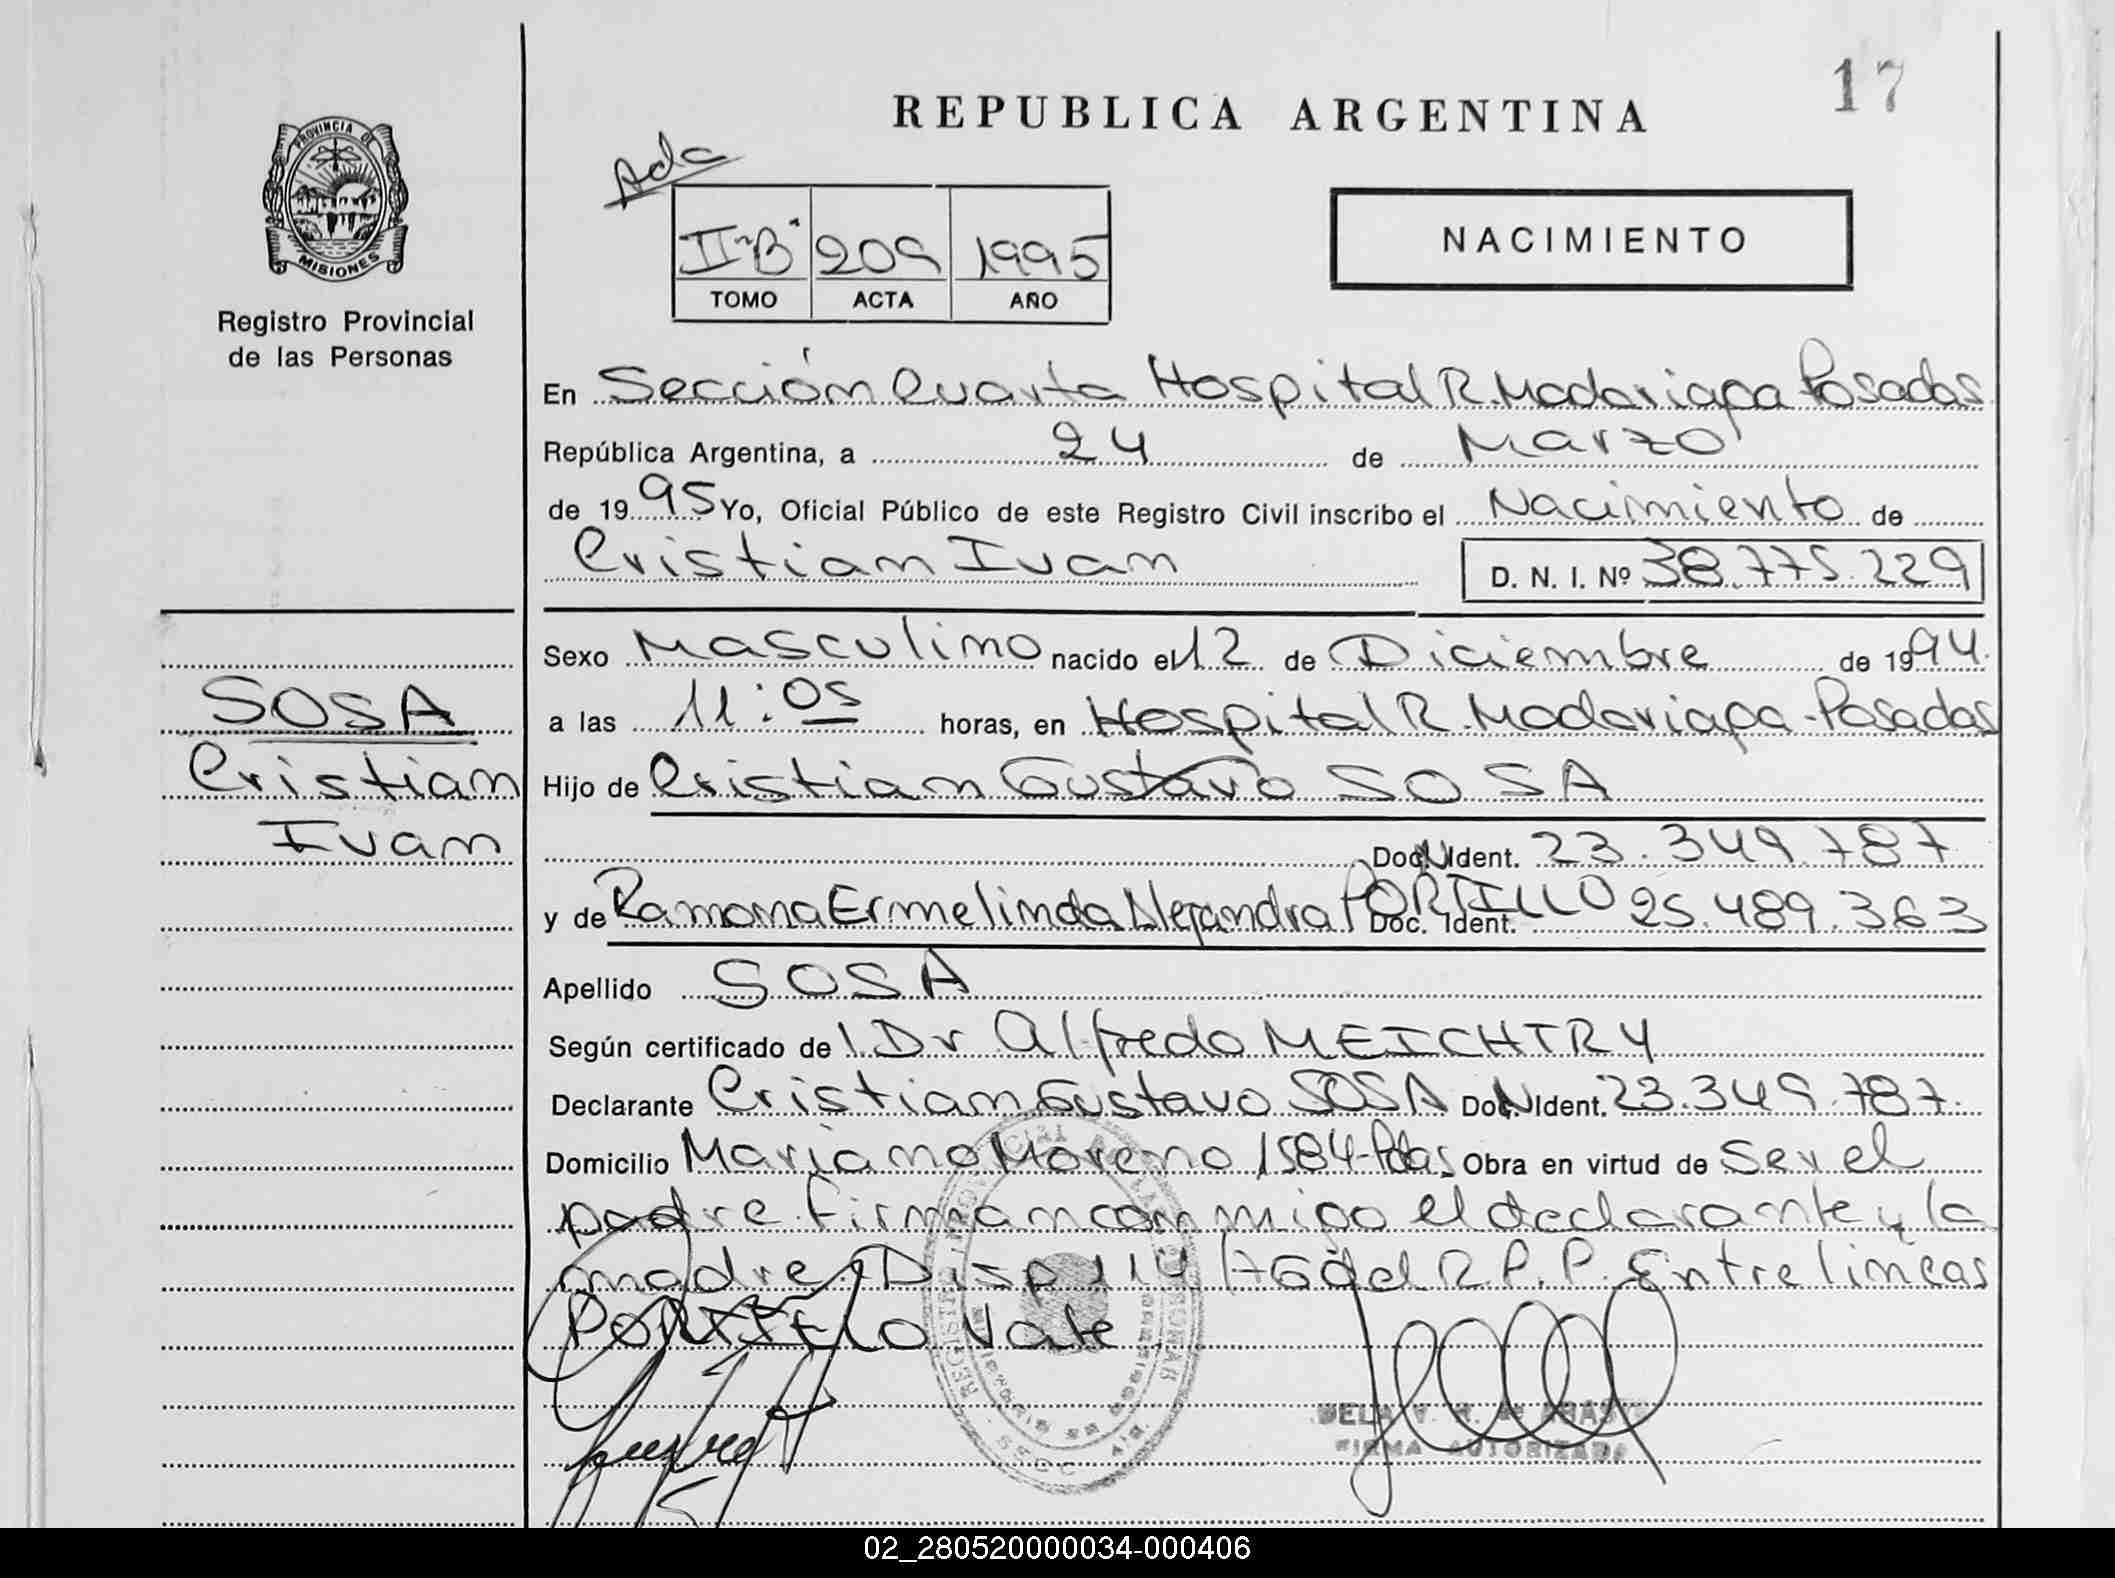 17
REPUBLICA ARGENTINA
PROVINCIA DE
MISIONES
Registro Provincial
de las Personas
Ada
II "B" 209 1995
TOMO ACTA AÑO
NACIMIENTO
En Sección Cuarta Hospital R. Madariaga Posadas
República Argentina, a 24 de Marzo
de 1995 Yo, Oficial Público de este Registro Civil inscribo el Nacimiento de
Cristian Ivan D. N. I. Nº 38.775.229
Sexo Masculino nacido el 12 de Diciembre de 1994.
a las 11:05 horas, en Hospital R. Madariaga - Posadas
Hijo de Cristian Gustavo SOSA
Doc. N Ident. 23.349.787
y de Ramona Ermelinda Alejandra PORTILLO Doc. Ident. 25.489.363
Apellido SOSA
Según certificado del Dr Alfredo MEICHTRY
Declarante Cristian Gustavo SOSA Doc. N Ident. 23.349.787.
Domicilio Mariano Moreno 1584-Pdas Obra en virtud de Ser el
padre. Firman conmigo el declarante y la
madre. Disp 114/76 del R.P.P. Entre lineas
PORTILLO Vale
FIRMA AUTORIZADA
SOSA
Cristian
Ivan
02_280520000034-000406